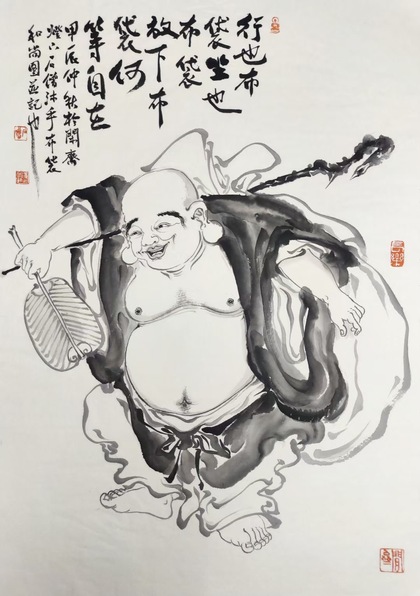 行也布
袋坐也
布袋
放下布
袋何
等自在
甲辰仲秋於齋
布袋
和尚圖並記也